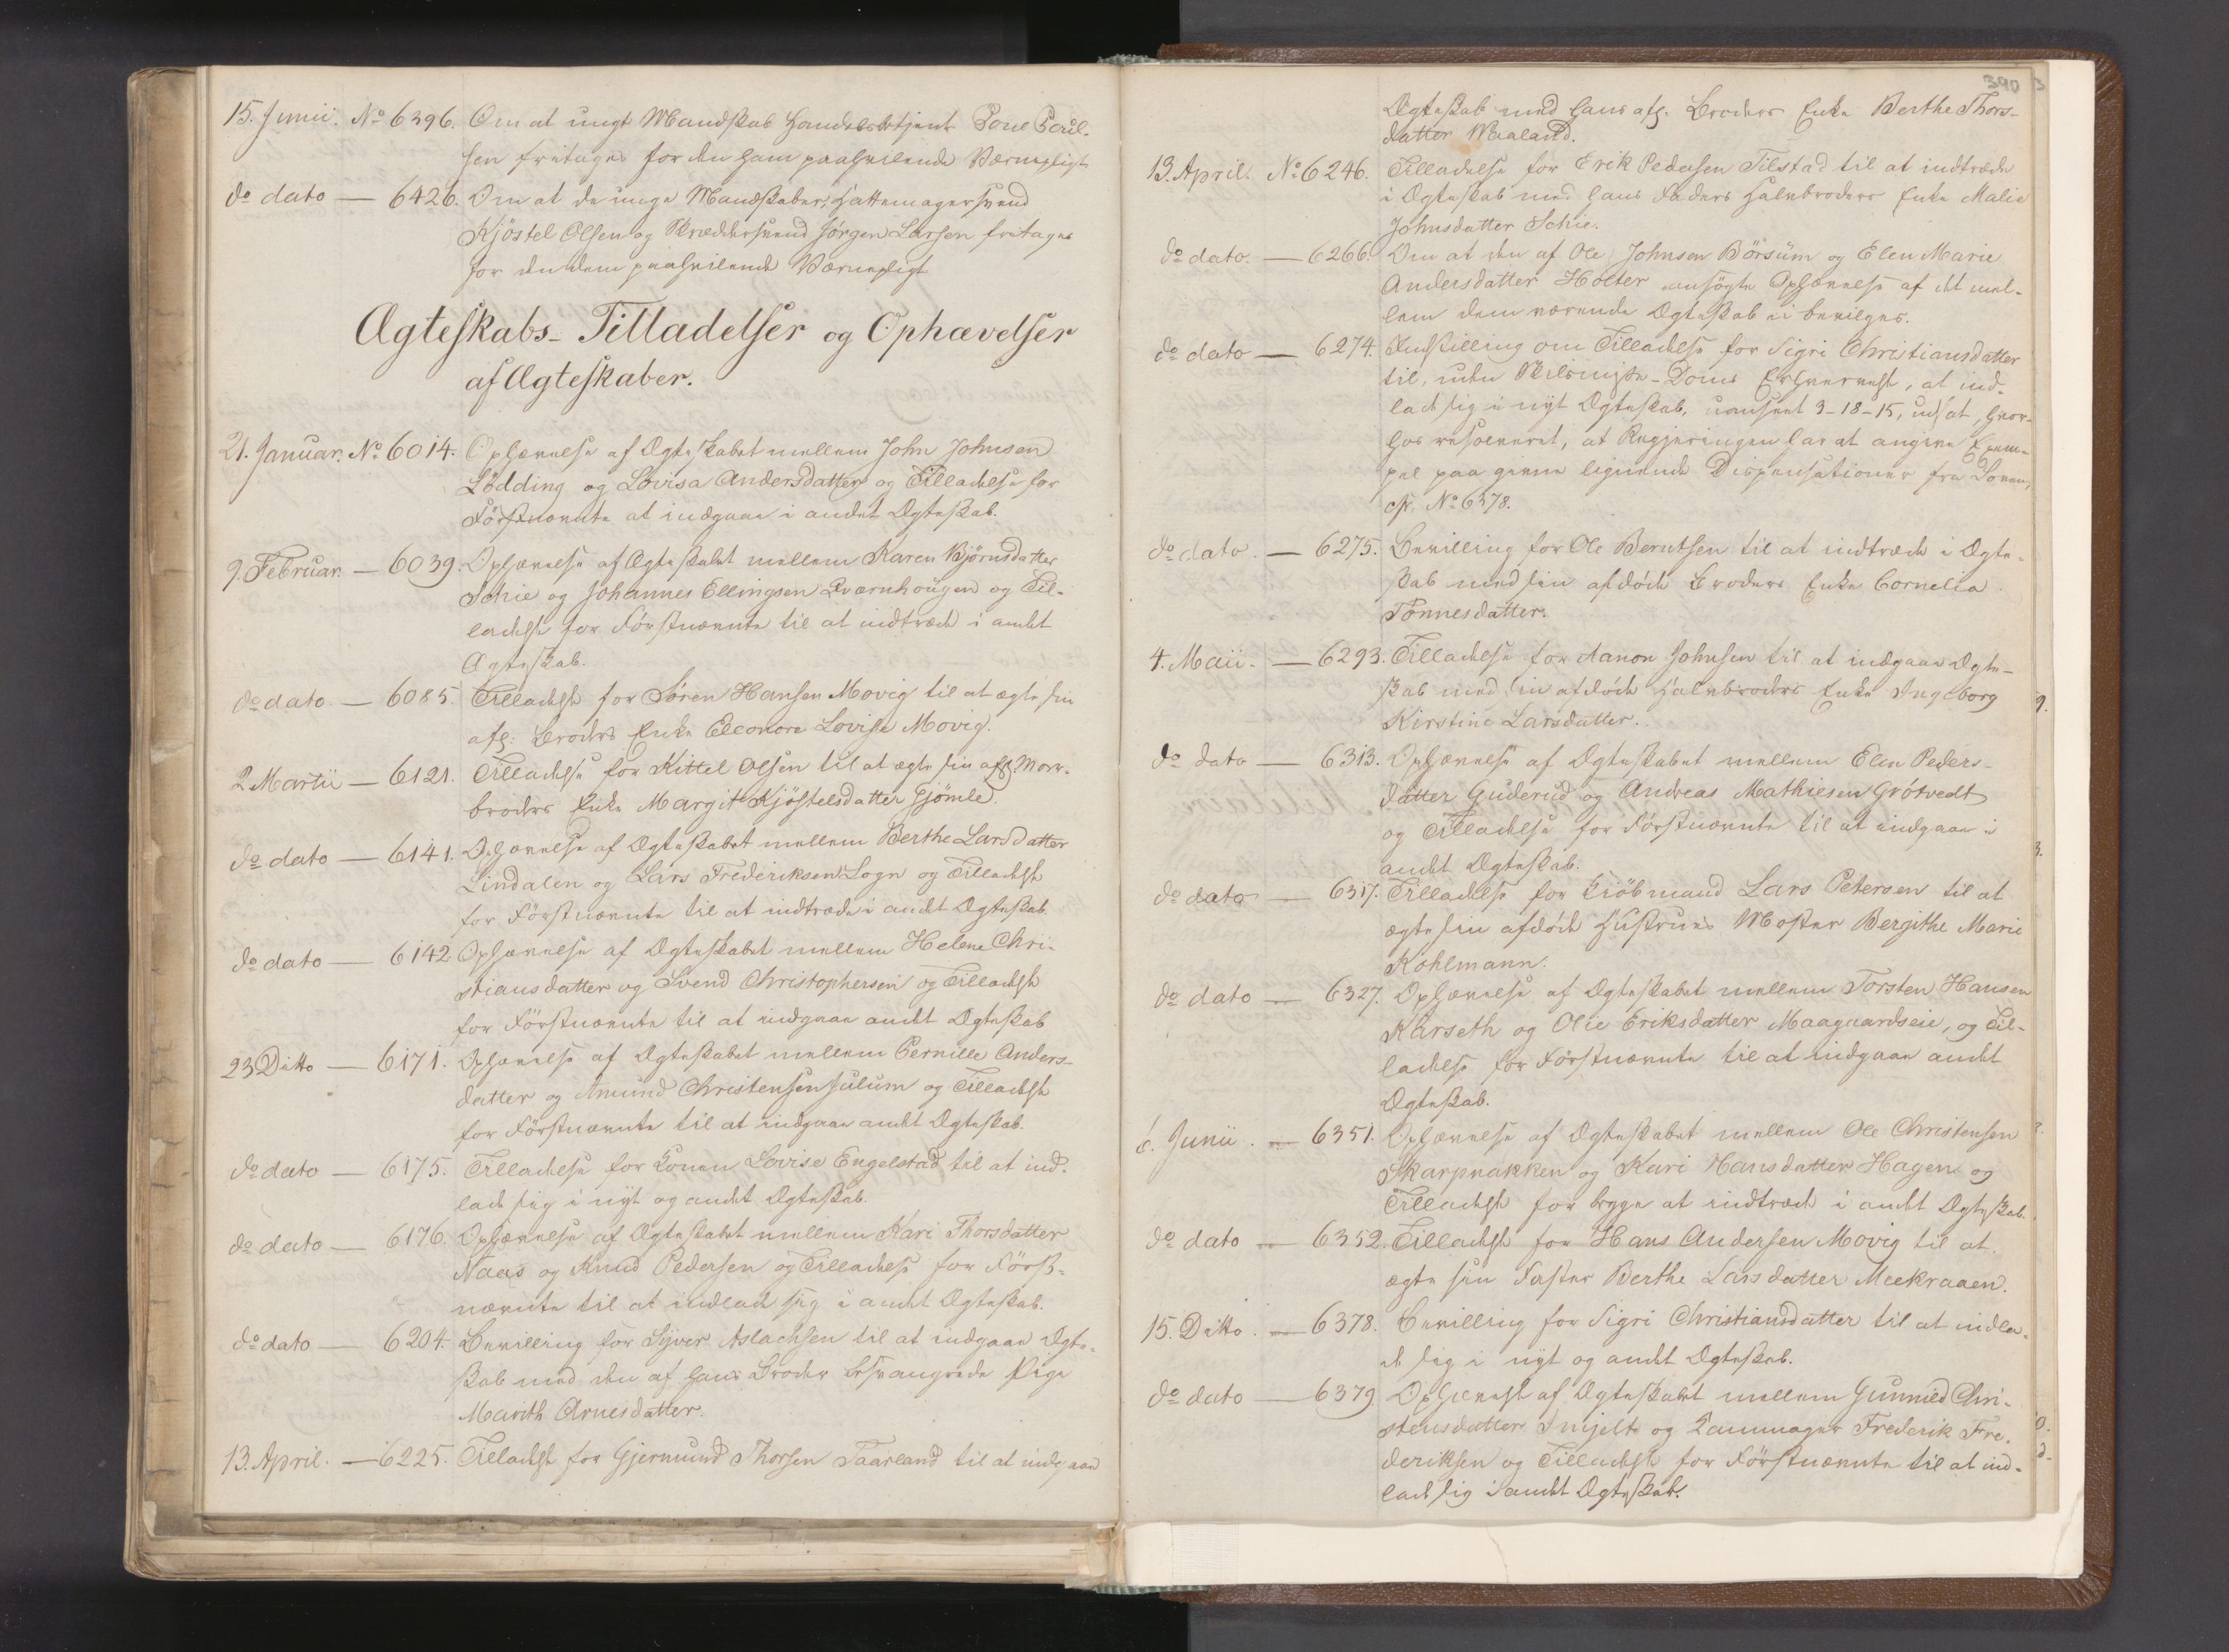 15. Junii. No 6396. Om at ungt Mandskab Handelsbetjent Poul Poul-
sen fritages for den ham paahvilende Værnepligt
do dato — 6426. Om at de unge Mandskaber, Hattemagersvend
Kjöstel Olsen og Skræddersvend Jörgen Larsen fritages
for den dem paahvilende Værnepligt
Ægteskabs-Tilladelser og Ophævelser
af Ægteskaber.
21. Januar. No 6014. Ophævelse af Ægteskabet mellem John Johnsen
Lödding og Lovisa Andersdatter og Tilladelse for
Förstnævnte at indgaae i andet Ægteskab.
9. Februar. — 6039. Ophævelse af Ægteskabet mellem Karen Bjørnsdatter
Schie og Johannes Ellingsen Qværnhougen og Til-
ladelse for Förstnævnte til at indtræde i andet
Ægteskab.
do dato — 6085. Tilladelse for Sören Hansen Movig til at ægte sin
afd: Broders Enke Eleonore Lovise Movig.
2 Martii — 6121. Tilladelse for Kittel Olsen til at ægte sin afd: Mor-
broders Enke Margit Kjöstelsdatter Hjömle.
do dato — 6141. Ophævelse af Ægteskabet mellem Berthe Larsdatter
Lindalen og Lars Frederiksen Sogn og Tilladelse
for Förstnævnte til at indtræde i andet Ægteskab.
do dato — 6142 Ophævelse af Ægteskabet mellem Helene Chri-
stiansdatter og Svend Christophersen og Tilladelse
for Förstnævnte til at indgaae andet Ægteskab
23 Ditto — 6171. Ophævelse af Ægteskabet mellem Pernille Anders-
datter og Amund Christensen Julum og Tilladelse
for Förstnævnte til at indgaae andet Ægteskab.
do dato — 6175. Tilladelse for Konen Lovise Engelstad til at ind-
lade sig i nyt og andet Ægteskab.
do dato — 6176. Ophævelse af Ægteskabet mellem Kari Thorsdatter
Naas og Knud Pedersen og Tilladelse for Först-
nævnte til at indlade sig i andet Ægteskab.
do dato — 6204. Bevilling for Syver Aslachsen til at indgaae Ægte-
skab med den af hans Broder besvangrede Pige
Marith Arnesdatter.
13. April. — 6225. Tilladelse for Gjermund Thorsen Taarland til at indgaae
390
Ægteskab med hans afd. Broders Enke Berthe Thors-
datter Waaland.
13. April. No 6246. Tilladelse for Erik Pedersen Tilstad til at indtræde
i Ægteskab med hans Faders Halvbroders Enke Malie
Johnsdatter Schie.
do dato. — 6266. Om at den af Ole Johnsen Börsüm og Elen Marie
Andersdatter Holter ansögte Ophævelse af det mel-
lem dem værende Ægteskab ei bevilges.
do dato — 6274. Indstilling om Tilladelse for Sigri Christiansdatter
til, uden Skilsmisse-Doms Erhvervelse, at ind-
lade sig i nyt Ægteskab, uanseet 3-18-15, udsat, hvor-
hos resolveret, at Regjeringen har at angive Exem-
pel paa givne lignende Dispensationer fra Loven,
cfr. No 6378.
do dato. — 6275. Bevilling for Ole Berntsen til at indtræde i Ægte-
skab med sin afdöde Broders Enke Cornelia
Tönnesdatter.
4. Maii. — 6293. Tilladelse for Aanon Johnsen til at indgaae Ægte-
skab med sin afdöde Halvbroders Enke Ingeborg
Kirstine Larsdatter.
do dato — 6313. Ophævelse af Ægteskabet mellem Elen Peders-
datter Guderud og Andreas Mathiesen Grötvedt
og Tilladelse for Förstnævnte til at indgaae i
andet Ægteskab.
do dato — 6317. Tilladelse for Kiöbmand Lars Petersen til at
ægte sin afdöde Hustrues Moster Bergithe Marie
Kohlmann.
do dato — 6327. Ophævelse af Ægteskabet mellem Torsten Hansen
Karseth og Olie Eriksdatter Maagaardseie, og Til-
ladelse for Förstnævnte til at indgaae andet
Ægteskab.
6. Junii. — 6351. Ophævelse af Ægteskabet mellem Ole Christensen
Skarpnakken og Kari Hansdatter Hagen og
Tilladelse for begge at indtræde i andet Ægteskab.
do dato — 6352. Tilladelse for Hans Andersen Movig til at
ægte sin Faster Berthe Larsdatter Meekraaen.
15. Ditto. — 6378. Bevilling for Sigri Christiansdatter til at indla-
de sig i nyt og andet Ægteskab.
do dato — 6379 Ophævelse af Ægteskabet mellem Gunnild Chri-
stensdatter Smjelte og Kammager Frederik Fre-
deriksen og Tilladelse for Förstnævnte til at ind-
lade sig i andet Ægteskab.